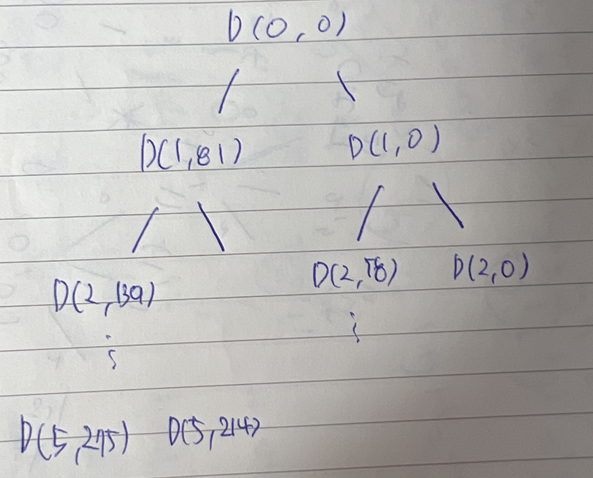 D(0,0)
D(1,81) D(1,0)
D(2,139) D(2,58) D(2,0)
D(5,275) D(5,214)